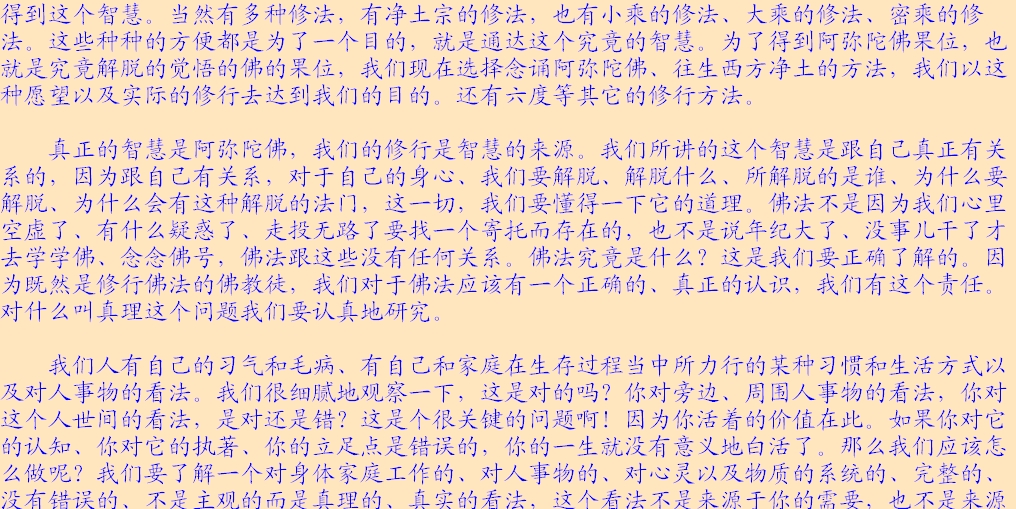 得到这个智慧。当然有多种修法，有净土宗的修法，也有小乘的修法、大乘的修法、密乘的修
法。这些种种的方便都是为了一个目的，就是通达这个究竟的智慧。为了得到阿弥陀佛果位，也
就是究竟解脱的觉悟的佛的果位，我们现在选择念诵阿弥陀佛、往生西方净土的方法，我们以这
种愿望以及实际的修行去达到我们的目的。还有六度等其它的修行方法。
真正的智慧是阿弥陀佛，我们的修行是智慧的来源。我们所讲的这个智慧是跟自己真正有关
系的，因为跟自己有关系，对于自己的身心、我们要解脱、解脱什么、所解脱的是谁、为什么要
解脱、为什么会有这种解脱的法门，这一切，我们要懂得一下它的道理。佛法不是因为我们心里
空虚了、有什么疑惑了、走投无路了要找一个寄托而存在的，也不是说年纪大了、没事儿干了才
去学学佛、念念佛号，佛法跟这些没有任何关系。佛法究竟是什么？这是我们要正确了解的。因
为既然是修行佛法的佛教徒，我们对于佛法应该有一个正确的、真正的认识，我们有这个责任。
对什么叫真理这个问题我们要认真地研究。
我们人有自己的习气和毛病、有自己和家庭在生存过程当中所力行的某种习惯和生活方式以
及对人事物的看法。我们很细腻地观察一下，这是对的吗？你对旁边、周围人事物的看法，你对
这个人世间的看法，是对还是错？这是个很关键的问题啊！因为你活着的价值在此。如果你对它
的认知、你对它的执著、你的立足点是错误的，你的一生就没有意义地白活了。那么我们应该怎
么做呢？我们要了解一个对身体家庭工作的、对人事物的、对心灵以及物质的系统的、完整的、
没有错误的、不是主观的而是真理的、真实的看法，这个看法不是来源于你的需要，也不是来源